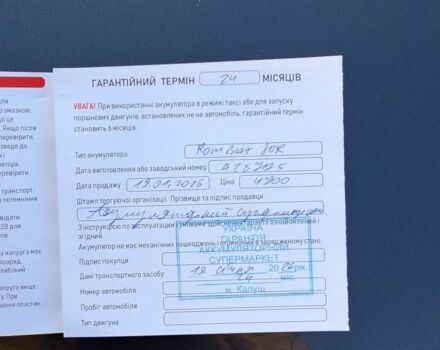 ГАРАНТІЙНИЙ ТЕРМІН 24 МІСЯЦІВ
УВАГА! При використанні акумулятора в режимі таксі або для запуску
поршневих двигунів, встановлених не на автомобіль, гарантійний термін
становить 6 місяців.
Тип акумулятора
Дата виготовлення або заводський номер
Дата продажу Ціна 4700
Штамп торгуючої організації. Прізвище та підпис продавця
Акумуляторний супермаркет
З інструкцією по експлуатації і умовами здійснення гарантії ознайомлений і
згідний.
Акумулятор не має механічних пошкоджень і отриманий в зарядженому стані.
Підпис покупця
Дані транспортного засобу
Номер автомобіля
Пробіг автомобіля
Тип двигуна
УКРАЇНА
ГАРАНТІЯ
АККУМУЛЯТОРНИЙ
СУПЕРМАРКЕТ
19 січня 2026 рік
24 міс.
м. Калуш
змазкою.
що це
. Якщо після
перевірити.
перевірити
транспорт-
потемніння
відати
2В для
напруга має
напруга вище
у. При
вання пластин